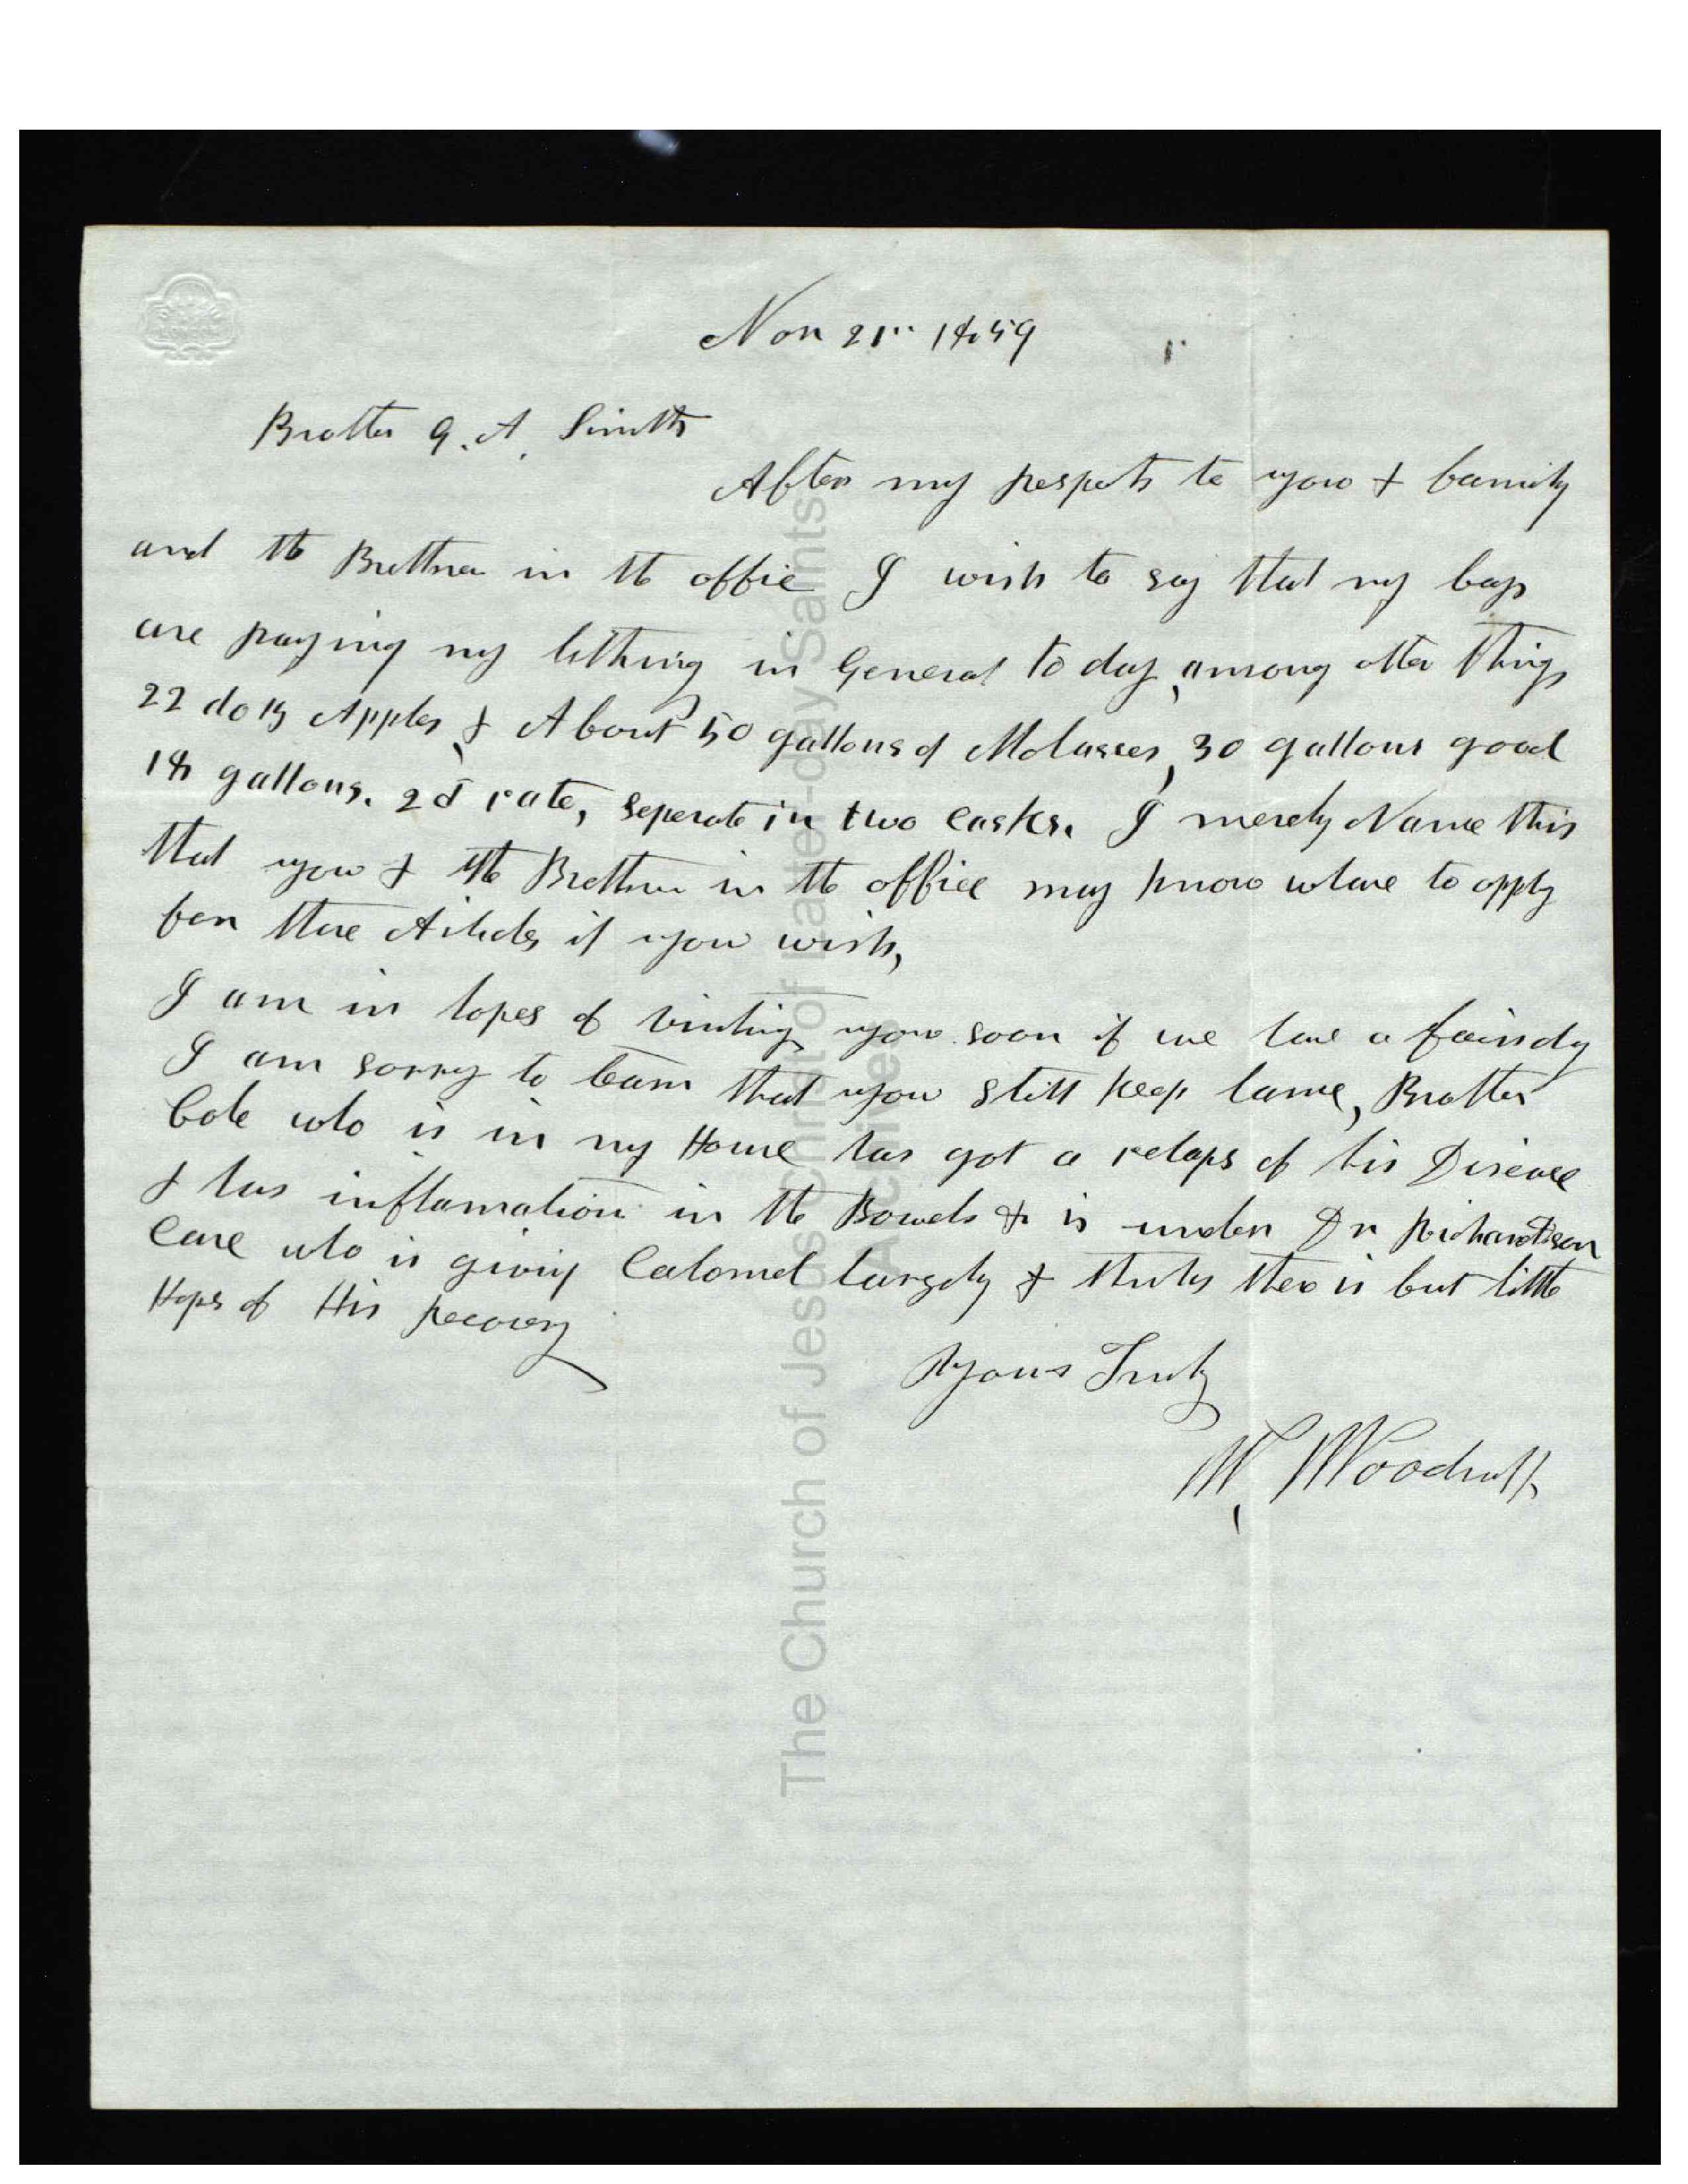 Nov 21st 1859
Brother G. A. Smith
After my respects to you & family
and the Brethren in the office I wish to say that my boys
are paying my tithing in General to day, among other things
22 doz Apples, & About 50 gallons of Molasses, 30 gallons good
18 gallons. 2d rate, seperate in two casks. I merely Name this
that you & the Brethren in the office may know whare to apply
for these Articles if you wish,
I am in hopes of visiting you soon if we have a fair day
I am sorry to learn that you still keep lame, Brother
Cole who is in my House has got a relaps of his Disease
& has inflamation in the Bowels & is under Dr Richardson
Care who is giving Calomel largely & thinks ther is but little
Hopes of His recovery
Yours Truly
W. Woodruff
The Church of Jesus Christ of Latter-day Saints
Archives